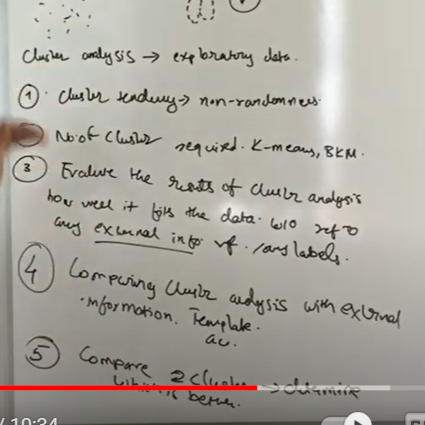 Cluster analysis → exploratory data.
① Cluster tendency → non-randomness.
No. of Cluster required. K-means, BKM.
③ Evaluate the results of cluster analysis
how well it fits the data. w/o ref to
any external info / any labels.
④ Comparing Cluster analysis with external
information. Template.
⑤ Compare 2 Cluster → determine
which is better.
/ 10:34